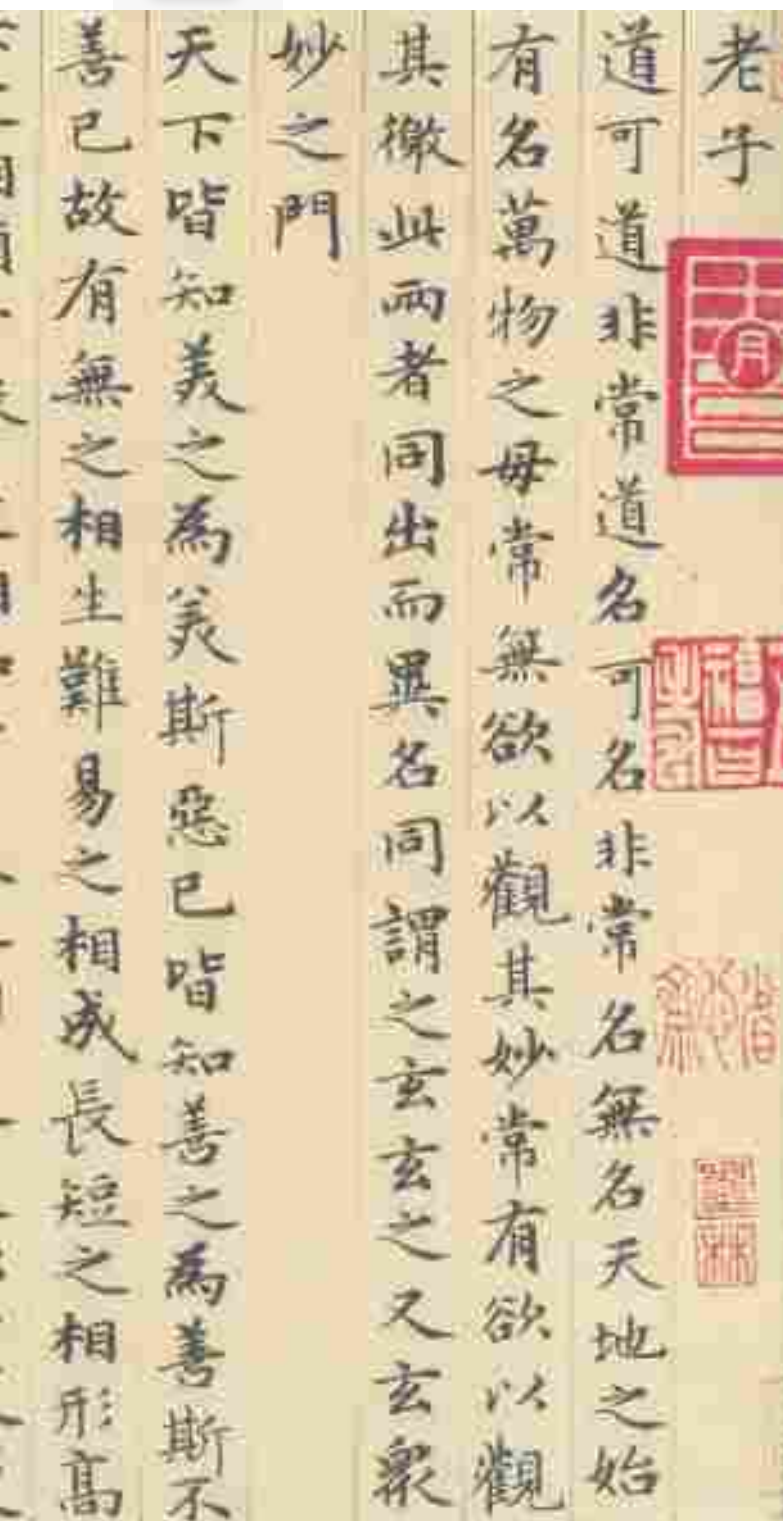 老子
道可道非常道名可名非常名無名天地之始
有名萬物之母常無欲以觀其妙常有欲以觀
其徼此兩者同出而異名同謂之玄玄之又玄衆
妙之門
天下皆知美之為美斯惡已皆知善之為善斯不
善已故有無之相生難易之相成長短之相形高